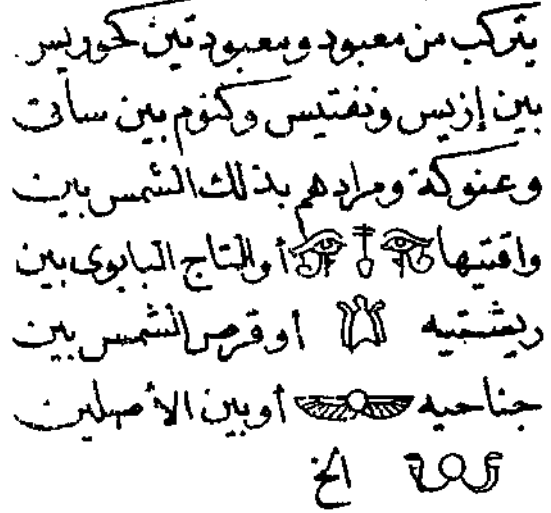 يتركب من معبود ومعبودتين كحوريس
بين إزيس ونفتيس وكنوم بين ساتى
وعنوكة ومرادهم بذلك الشمس بين
واقيتيها 𓂀 𓄤 𓂀 أو التاج البابوى بين
ريشتيه أو قرص الشمس بين
جناحيه أو بين الأصلين
الخ